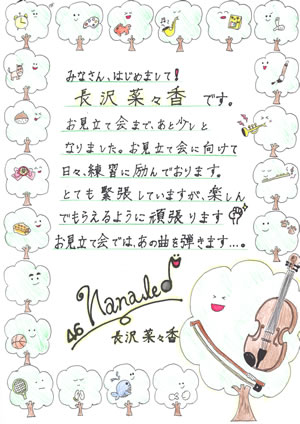 みなさん、はじめまして!
長沢菜々香です。
お見立て会まで、あと少しと
なりました。お見立て会に向けて
日々、練習に励んでおります。
とても緊張していますが、楽しん
でもらえるように頑張ります
お見立て会では、あの曲を弾きます...。
46
長沢菜々香